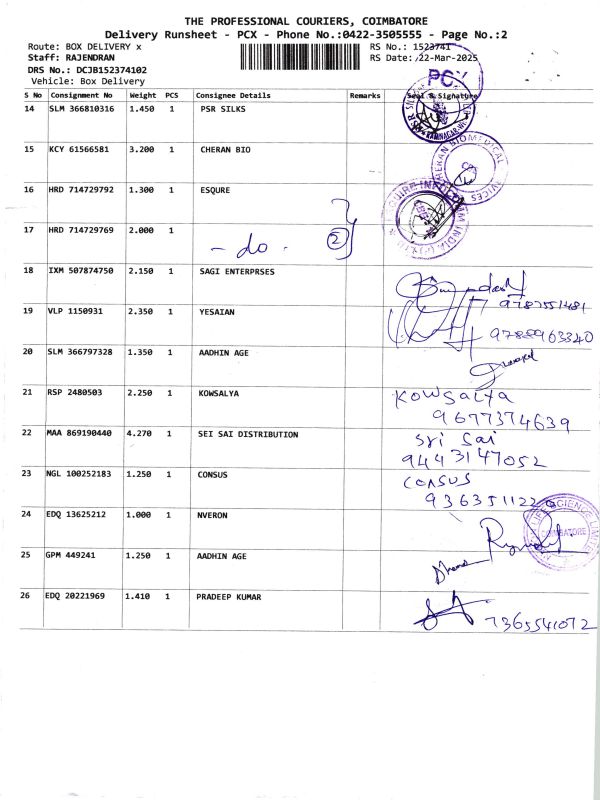 THE PROFESSIONAL COURIERS, COIMBATORE
Delivery Runsheet - PCX - Phone No.:0422-3505555 - Page No.:2
Route: BOX DELIVERY x RS No.: 1523741
Staff: RAJENDRAN RS Date: 22-Mar-2025
DRS No.: DCJB152374102
Vehicle: Box Delivery
PCX
S No Consignment No Weight PCS Consignee Details Remarks Seal & Signature
14 SLM 366810316 1.450 1 PSR SILKS
15 KCY 61566581 3.200 1 CHERAN BIO
16 HRD 714729792 1.300 1 ESQURE
17 HRD 714729769 2.000 1
- do - 2
18 IXM 507874750 2.150 1 SAGI ENTERPRSES
9787551481
19 VLP 1150931 2.350 1 YESAIAN
9788963340
20 SLM 366797328 1.350 1 AADHIN AGE
21 RSP 2480503 2.250 1 KOWSALYA KOWSALYA
9677374639
22 MAA 869190440 4.270 1 SEI SAI DISTRIBUTION Sri Sai
9443147052
23 NGL 100252183 1.250 1 CONSUS CONSUS
9363511220
24 EDQ 13625212 1.000 1 NVERON
COIMBATORE
25 GPM 449241 1.250 1 AADHIN AGE
26 EDQ 20221969 1.410 1 PRADEEP KUMAR
7365541072